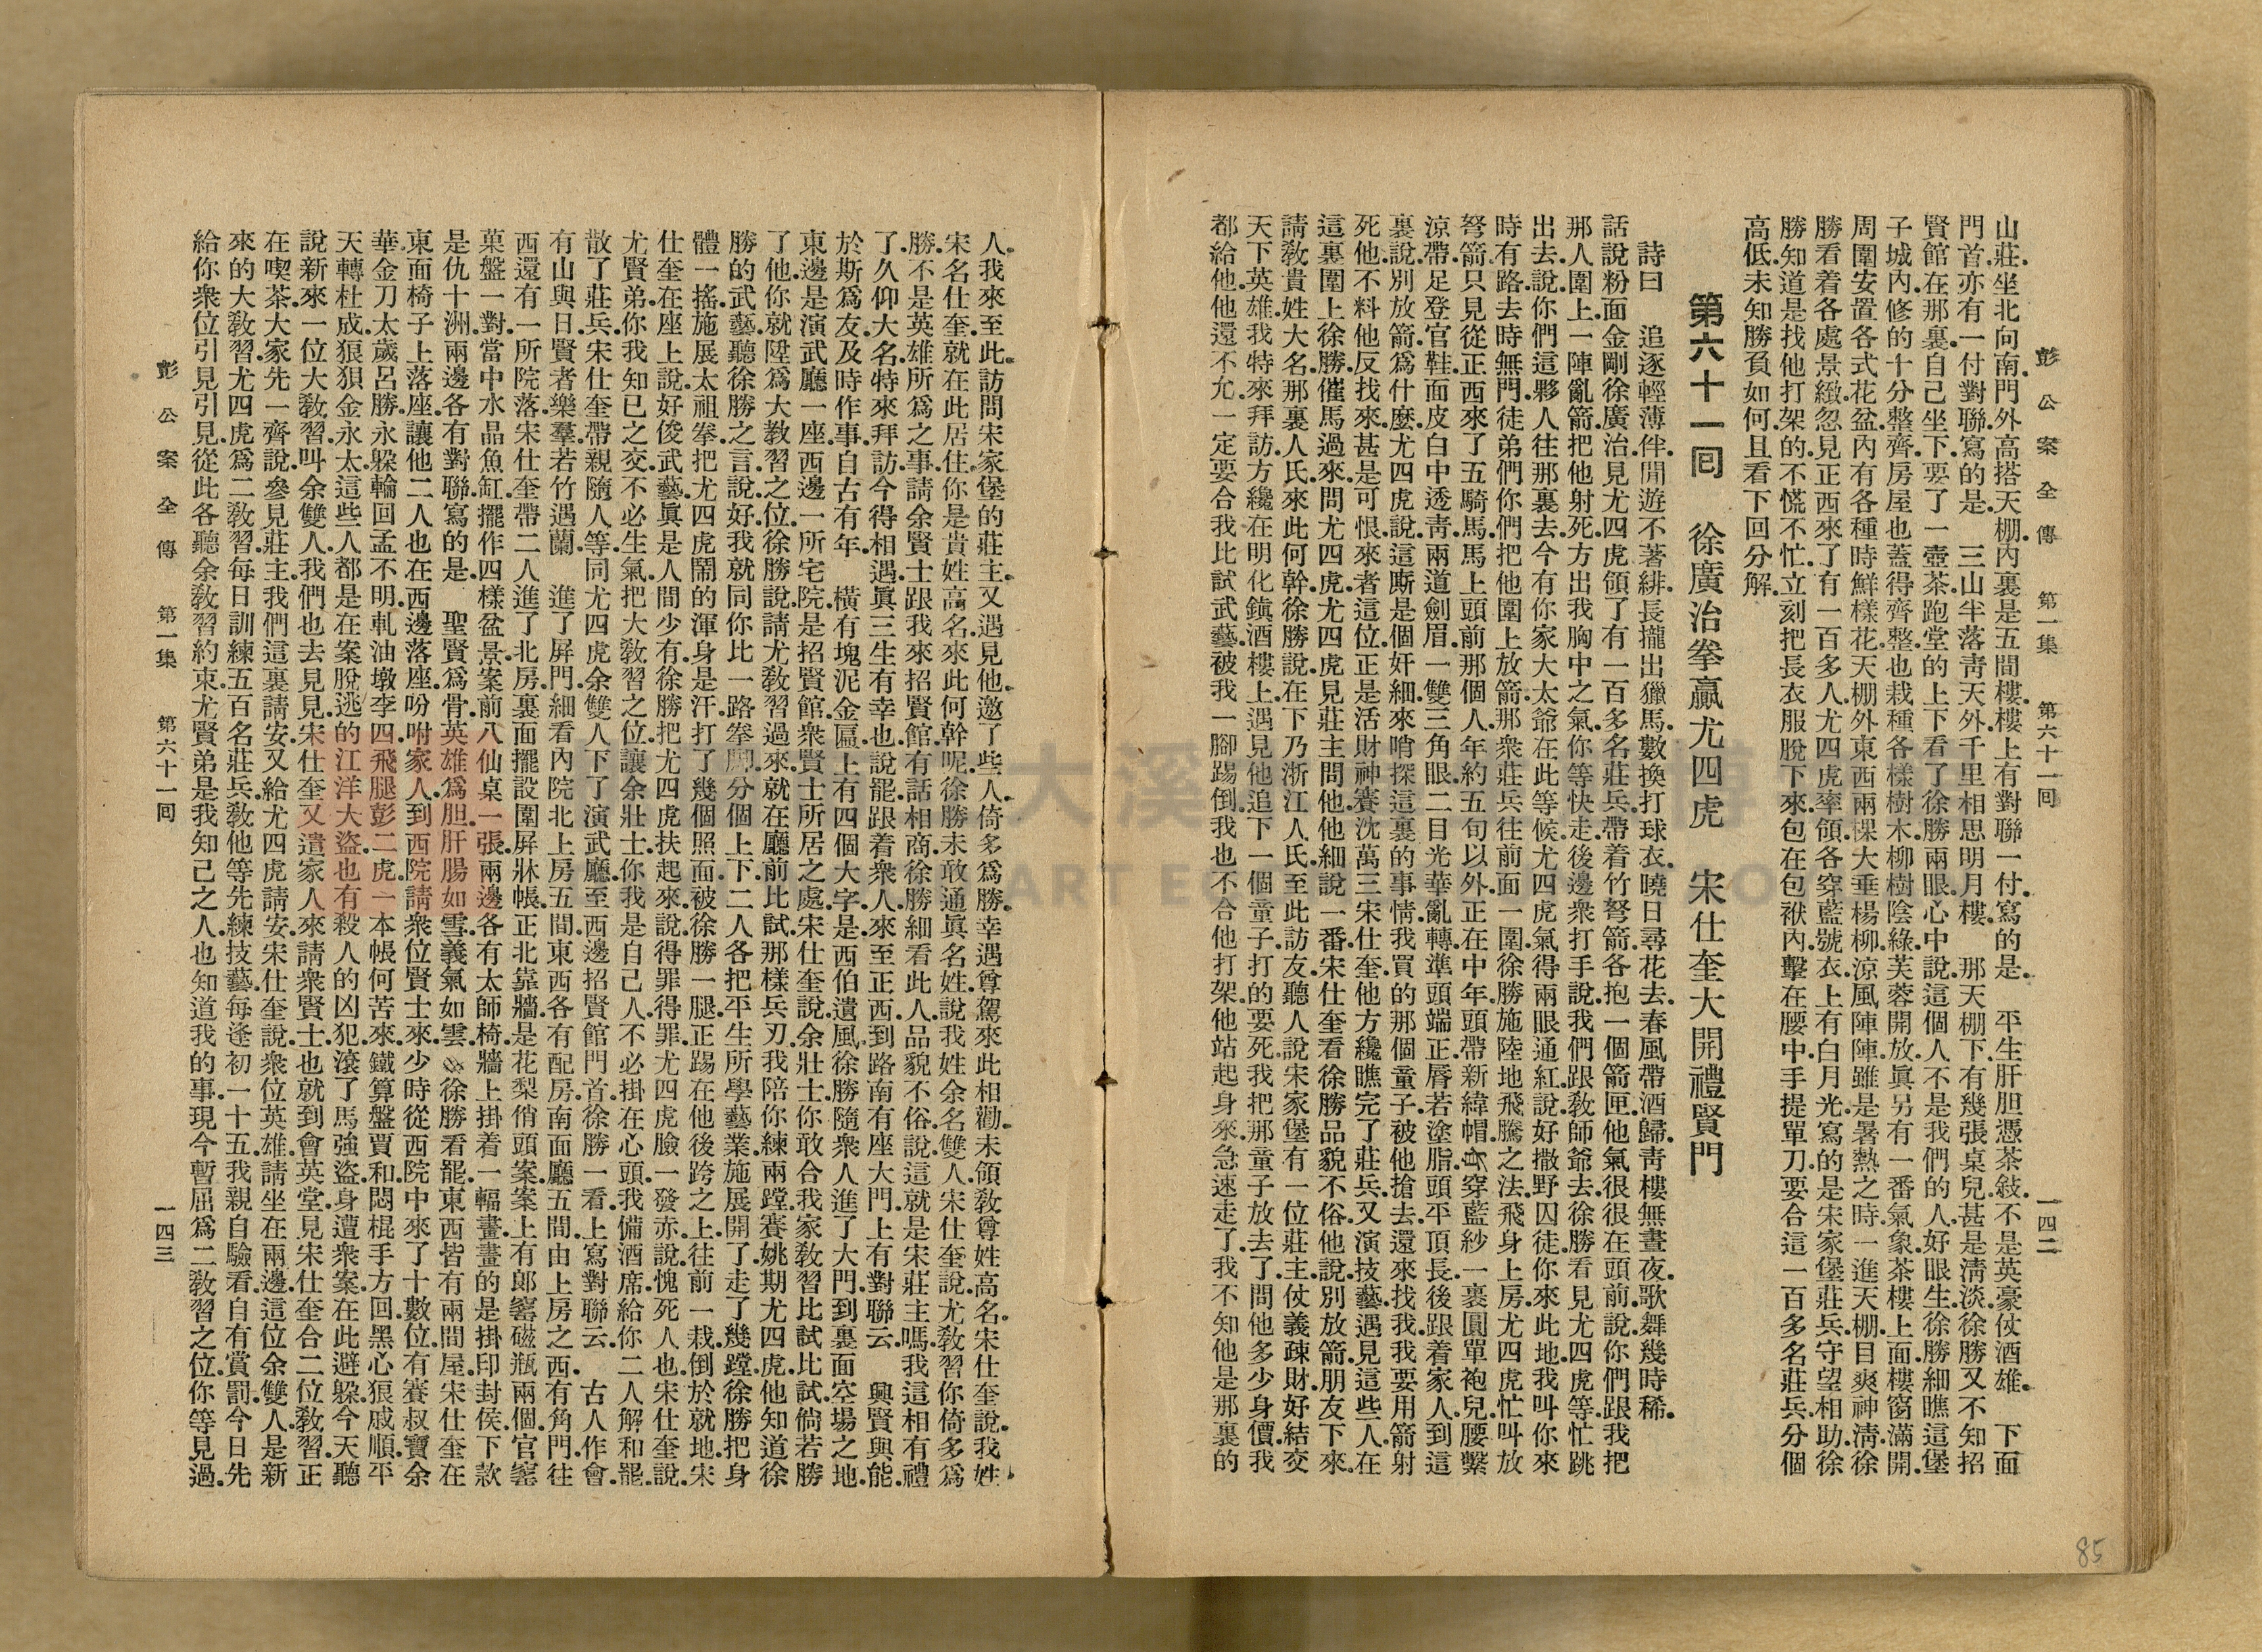 彭公案全傳　第一集　第六十一回　一四二
山莊.坐北向南.門外高搭天棚.內裏是五間樓.樓上有對聯一付.寫的是.　平生肝胆憑茶敍.不是英豪仗酒雄.　下面
門首.亦有一付對聯.寫的是　三山半落靑天外.千里相思明月樓.　那天棚下有幾張桌兒.甚是淸淡.徐勝又不知招
賢館在那裏.自己坐下.要了一壺茶.跑堂的上下看了徐勝兩眼.心中說.這個人不是我們的人.好眼生.徐勝細瞧這堡
子城內.修的十分整齊.房屋也蓋得齊整.也栽種各樣樹木.柳樹陰綠.芙蓉開放.眞另有一番氣象.茶樓上面樓窗滿開.
周圍安置各式花盆.內有各種時鮮樣花.天棚外東西兩棵大垂楊柳.涼風陣陣.雖是暑熱之時.一進天棚.目爽神淸.徐
勝看着各處景緻.忽見正西來了有一百多人.尤四虎率領.各穿藍號衣.上有白月光.寫的是宋家堡莊兵.守望相助.徐
勝知道是找他打架的.不慌不忙.立刻把長衣服脫下來.包在包袱內.繫在腰中.手提單刀.要合這一百多名莊兵.分個
高低.未知勝負如何.且看下回分解.
第六十一回　徐廣治拳贏尤四虎　宋仕奎大開禮賢門
詩曰　追逐輕薄伴.閒遊不著緋.長攏出獵馬.數換打球衣.曉日尋花去.春風帶酒歸.靑樓無晝夜.歌舞幾時稀.
話說粉面金剛徐廣治.見尤四虎領了有一百多名莊兵.帶着竹弩箭.各抱一個箭匣.他氣很很在頭前說.你們跟我把
那人圍上.一陣亂箭.把他射死.方出我胸中之氣.你等快走.後邊衆打手說.我們跟敎師爺去.徐勝看見尤四虎等忙跳
出去說.你們這夥人往那裏去.今有你家大太爺在此等候.尤四虎氣得兩眼通紅.說好撒野囚徒.你來此地.我叫你來
時有路.去時無門.徒弟們.你們把他圍上放箭.那衆莊兵往前面一圍.徐勝施陸地飛騰之法.飛身上房.尤四虎忙叫放
弩箭.只見從正西來了五騎馬.馬上頭前那個人.年約五旬以外.正在中年.頭帶新緯帽.穿藍紗一裹圓單袍兒.腰繫
涼帶.足登官鞋.面皮白中透靑.兩道劍眉.一雙三角眼.二目光華亂轉.準頭端正.唇若塗脂.頭平頂長.後跟着家人.到這
裏說別放箭.爲什麼.尤四虎說.這廝是個奸細.來啃探這裏的事情.我買的那個童子.被他搶去.還來找我.我要用箭射
死他.不料他反找來.甚是可恨.來者這位.正是活財神賽沈萬三宋仕奎.他方纔瞧完了莊兵.又演技藝.遇見這些人.在
這裏圍上徐勝.催馬過來.問尤四虎.尤四虎見莊主問他.他細說一番.宋仕奎看徐勝品貌不俗.他說.別放箭.朋友下來.
請敎貴姓大名.那裏人氏.來此何幹.徐勝說.在下乃浙江人氏.至此訪友.聽人說宋家堡有一位莊主.仗義疎財.好結交
天下英雄.我特來拜訪.方纔在明化鎭酒樓上遇見他.追下一個童子.打的要死.我把那童子放去了.問他多少身價.我
都給他.他還不允.一定要合我比試武藝.被我一腳踢倒.我也不合他打架.他站起身來.急速走了.我不知他是那裏的
人.我來至此.訪問宋家堡的莊主.又遇見他.邀了些人.倚多爲勝.幸遇尊駕來此相勸.未領敎尊姓高名.宋仕奎說.我姓
宋.名仕奎.就在此居住.你是貴姓高名.來此何幹呢.徐勝未敢通眞名姓.說我姓余.名雙人.宋仕奎說.尤敎習.你倚多爲
勝.不是英雄所爲之事.請余賢士跟我來招賢館.有話相商.徐勝細看此人品貌不俗.說這就是宋莊主嗎.我這相有禮
了.久仰大名.特來拜訪.今得相遇.眞三生有幸也.說罷.跟着衆人來至正西.到路南有座大門.上有對聯云　興賢與能.
於斯爲友.及時作事.自古有年　橫有塊泥金匾.上有四個大字.是西伯遺風.徐勝隨衆人進了大門.到裏面空場之地.
東邊是演武廳一座.西邊一所宅院.是招賢館.衆賢士所居之處.宋仕奎說.余壯士.你敢合我家敎習比試比試.倘若勝
了他.你就陞爲大教習之位.徐勝說.請尤敎習過來.就在廳前比試.那樣兵刃.我陪你練兩蹚.賽姚期尤四虎.他知道徐
勝的武藝.聽徐勝之言.說好.我就同你比一路拳腳.分個上下.二人各把平生所學藝業.施展開了.走了幾蹚.徐勝把身
體一搖.施展太祖拳.把尤四虎鬧的渾身是汗.打了幾個照面.被徐勝一腿.正踢在他後跨之上.往前一栽.倒於就地.宋
仕奎在座上說.好俊武藝.眞是人間少有.徐勝把尤四虎扶起來.說得罪得罪.尤四虎臉一發赤.說愧死人也.宋仕奎說.
尤賢弟.你我知已之交.不必生氣.把大敎習之位.讓余壯士.你我是自己人.不必掛在心頭.我備酒席.給你二人解和.罷.
散了莊兵.宋仕奎帶親隨人等.同尤四虎余雙人.下了演武廳.至西邊招賢館門首.徐勝一看.上寫對聯云　古人作會.
有山與日.賢者樂羣.若竹遇蘭.　進了屏門.細看內院北上房五間.東西各有配房.南面廳五間.由上房之西.有角門.往
西還有一所院落.宋仕奎帶二人進了北房.裏面擺設圍屏牀帳.正北靠牆.是花梨俏頭案.案上有郞窰磁瓶兩個.官窰
菓盤一對.當中水晶魚缸.擺作四樣盆景.案前八仙桌一張.兩邊各有太師椅.牆上掛着一輻畫.畫的是掛印封侯.下款
是仇十洲.兩邊各有對聯.寫的是　聖賢爲骨.英雄爲胆.肝腸如雪.義氣如雲　徐勝看罷.東西皆有兩間屋.宋仕奎在
東面椅子上落座.讓他二人也在西邊落座.吩咐家人.到西院請衆位賢士來.少時從西院中來了十數位.有賽叔寶余
華.金刀太歲呂勝.永躱輪回孟不明.軋油墩李四.飛腿彭二虎.一本帳何苦來.鐵算盤賈和.悶棍手方回.黑心狼戚順.平
天轉杜成.狼狽金永太.這些人都是在案脫逃的江洋大盜.也有殺人的凶犯.滾了馬強盜.身遭衆案.在此避躱.今天聽
說新來一位大敎習.叫余雙人.我們也去見見.宋仕奎又遣家人來請衆賢士.也就到會英堂.見宋仕奎合二位敎習.正
在喫茶.大家先一齊說.參見莊主.我們這裏請安.又給尤四虎請安.宋仕奎說.衆位英雄.請坐在兩邊.這位余雙人.是新
來的大敎習.尤四虎爲二敎習.每日訓練五百名莊兵.敎他等先練技藝.每逢初一十五.我親自驗看.自有賞罰.今日先
給你衆位引見引見.從此各聽余敎習約束.尤賢弟是我知己之人.也知道我的事.現今暫屈爲二敎習之位.你等見過.
彭公案全傳　第一集　第六十一回　一四三
85